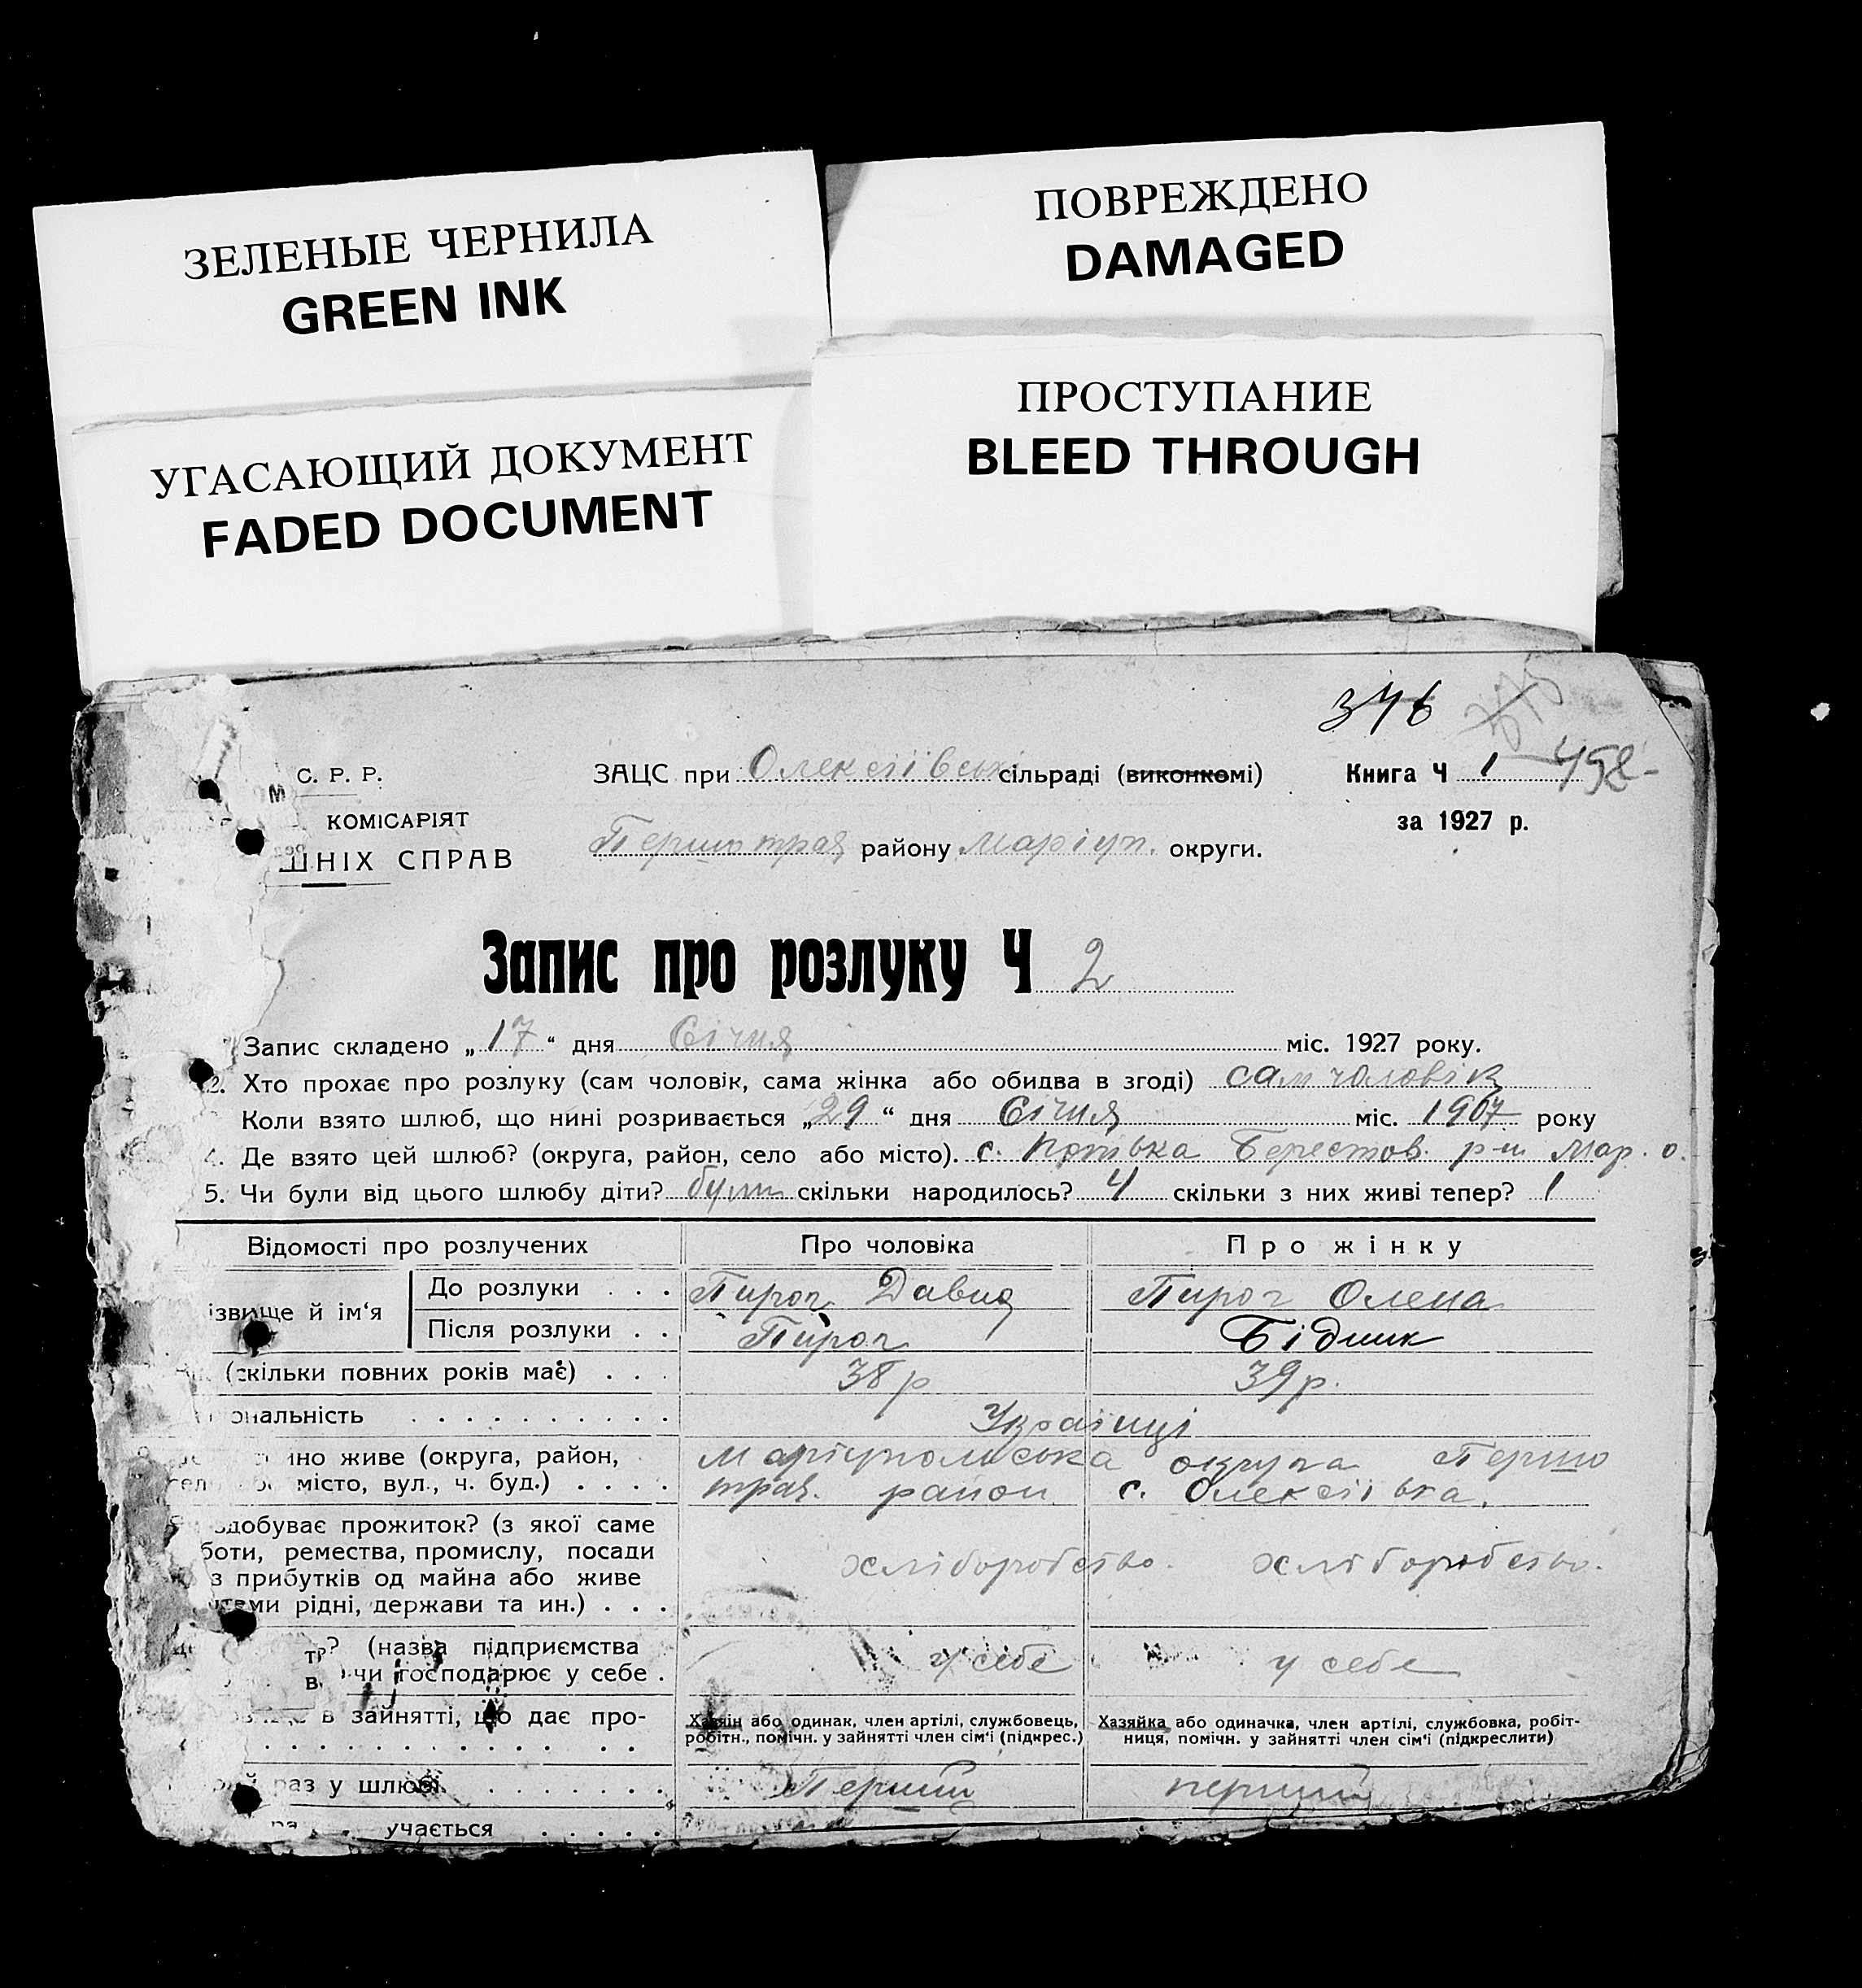 ЗЕЛЕНЫЕ ЧЕРНИЛА
GREEN INK
ПОВРЕЖДЕНО
DAMAGED
УГАСАЮЩИЙ ДОКУМЕНТ
FADED DOCUMENT
ПРОСТУПАНИЕ
BLEED THROUGH
346
С. Р. Р.
ЗАЦС при Олексіївськ сільраді (виконкомі)
Книга Ч 1 452
КОМІСАРІЯТ
за 1927 р.
ШНІХ СПРАВ
Першотрав району Маріуп. округи.
Запис про розлуку Ч 2
Запис складено „17“ дня Січня міс. 1927 року.
2. Хто прохає про розлуку (сам чоловік, сама жінка або обидва в згоді) сам чоловік
Коли взято шлюб, що нині розривається „29“ дня Січня міс. 1907 року
4. Де взято цей шлюб? (округа, район, село або місто). с. Берестов. р-н Мар. о.
5. Чи були від цього шлюбу діти? були скільки народилось? 4 скільки з них живі тепер? 1
Відомості про розлучених
Про чоловіка
Про жінку
ізвище й ім'я
До розлуки . . .
Пирог Давид
Пирог Олена
Після розлуки . .
Пирог
Бідник
(скільки повних років має) . . .
38 р
39 р.
ональність . . . . . . . . . .
Українці
но живе (округа, район,
Маріупольська округа Першо
місто, вул., ч. буд.) . . . .
трав. район с. Олексіївка.
здобуває прожиток? (з якої саме
боти, ремества, промислу, посади
з прибутків од майна або живе
хліборобство. хліборобство.
тами рідні, держави та ин.) . . .
? (назва підприємства
чи господарює у себе .
у себе
у себе
в зайнятті, що дає про-
Хазяїн або одинак, член артілі, службовець,
робітн., помічн. у зайнятті член сім'ї (підкрес.)
Хазяйка або одиначка, член артілі, службовка, робіт-
ниця, помічн. у зайнятті член сім'ї (підкреслити)
раз у шлюбі . . . . . . .
Перший
перший
учається . . . . .